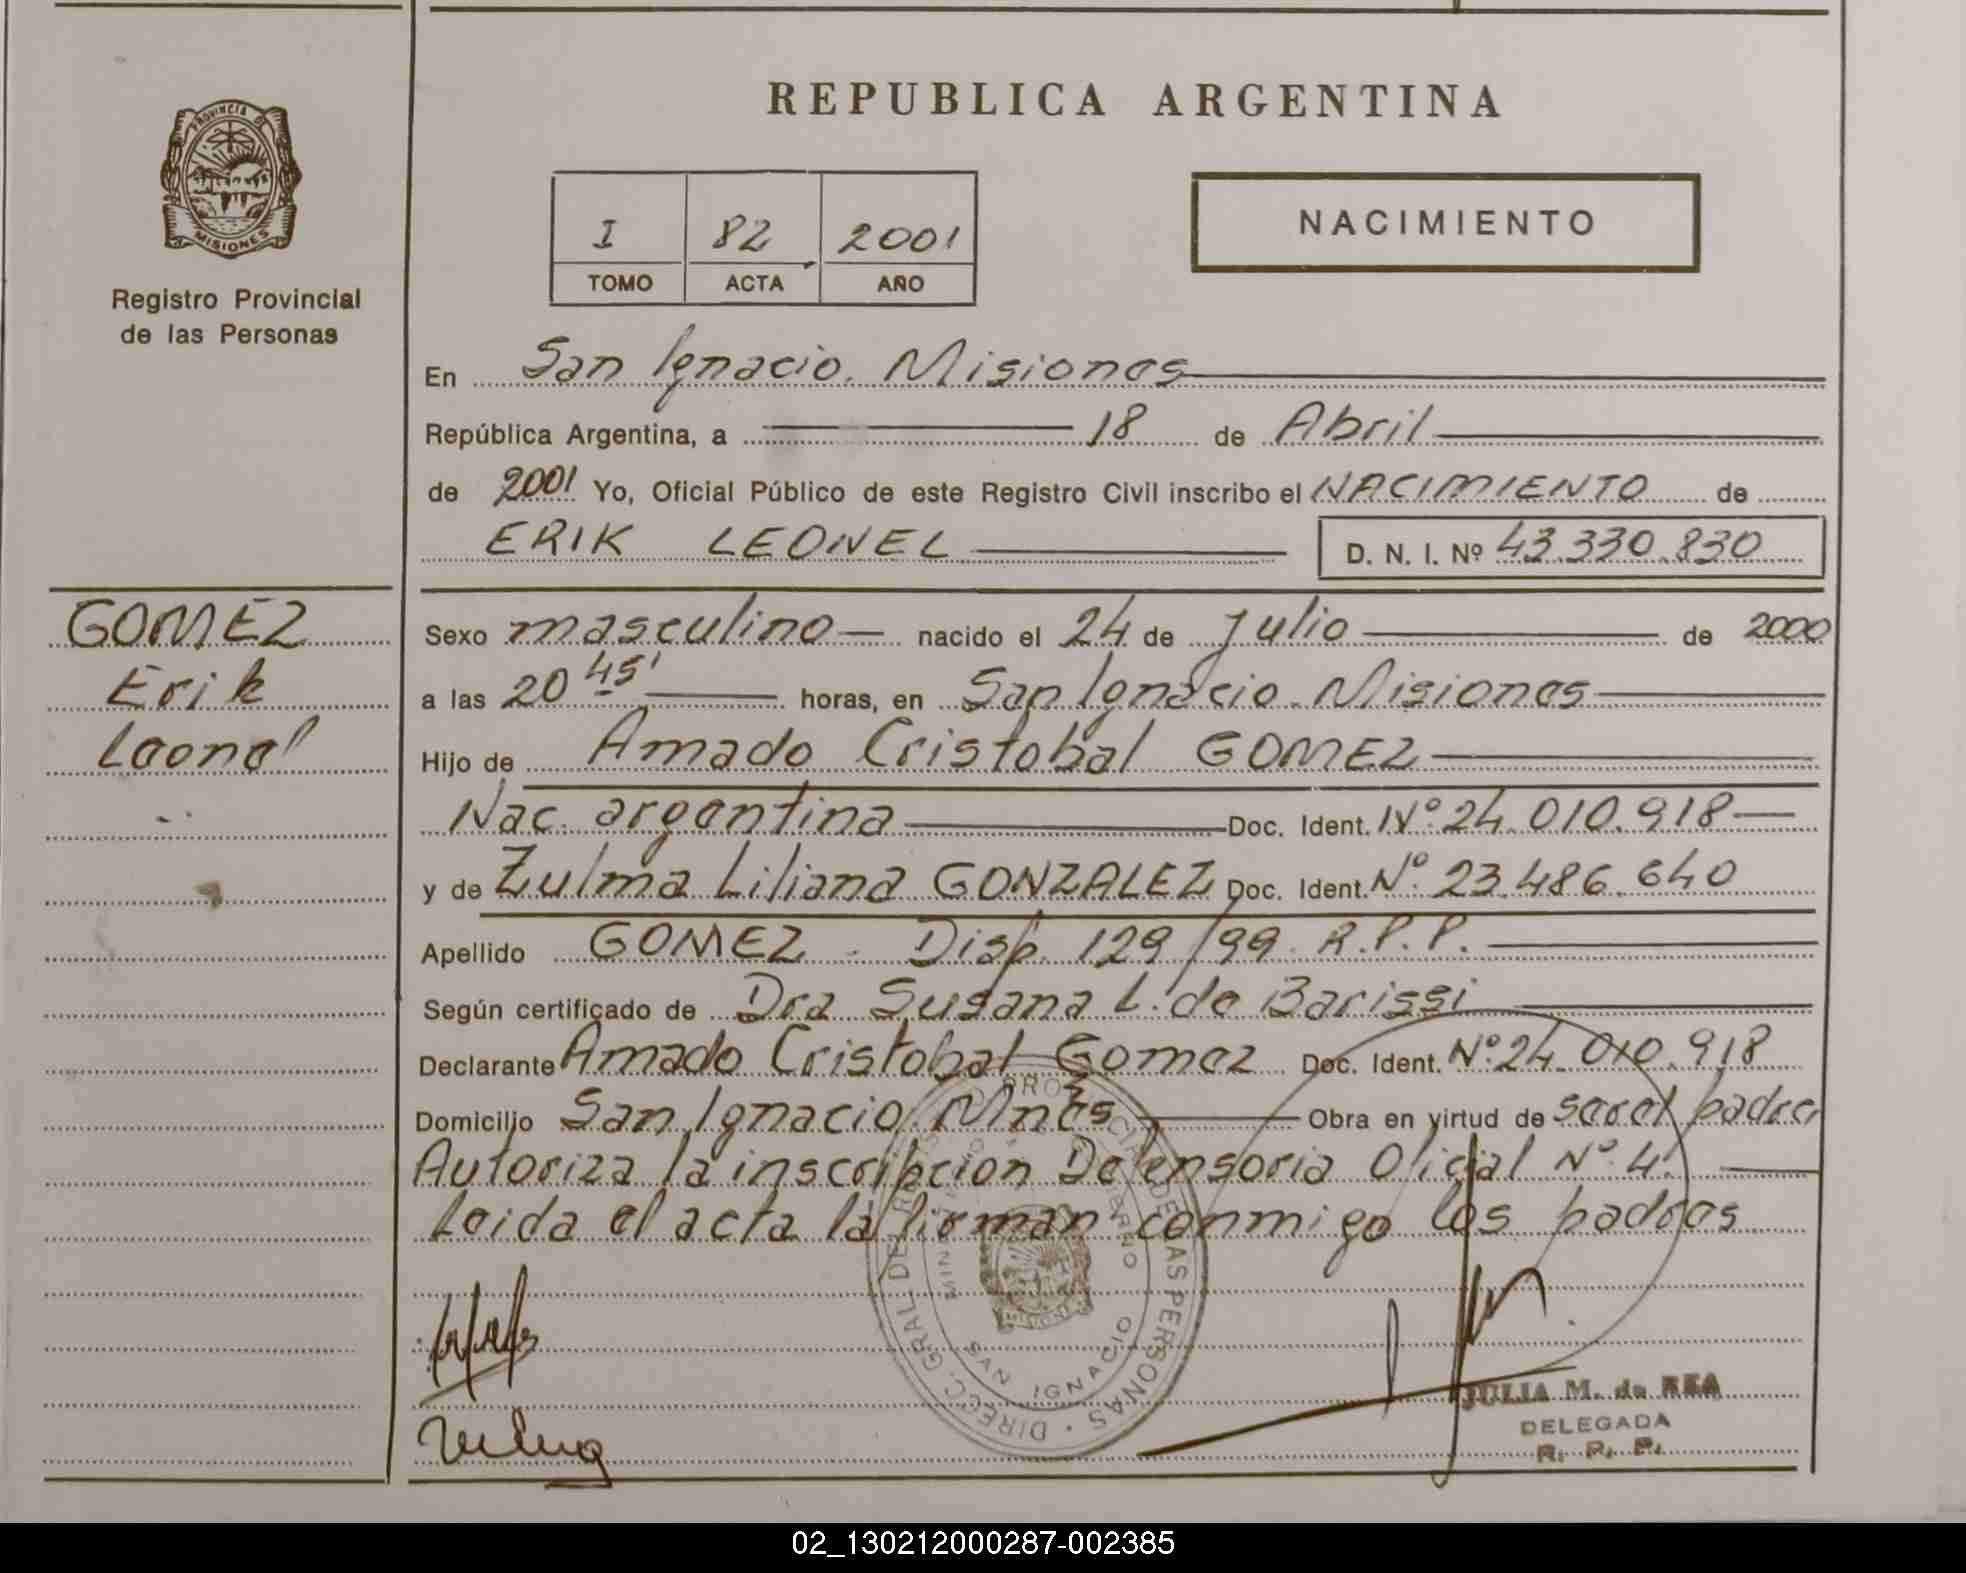 REPUBLICA ARGENTINA
PROVINCIA D
MISIONES
Registro Provincial
de las Personas
I 82 2001
TOMO ACTA AÑO
NACIMIENTO
En San Ignacio. Misiones
República Argentina, a 18 de Abril
de 2001 Yo, Oficial Público de este Registro Civil inscribo el NACIMIENTO de
ERIK LEONEL D. N. I. Nº 43.330.830
GOMEZ
Erik
Leonel
Sexo masculino nacido el 24 de Julio de 2000
a las 20 45' horas, en San Ignacio. Misiones
Hijo de Amado Cristobal GOMEZ
Nac. argentina Doc. Ident. Nº 24.010.918
y de Zulma Liliana GONZALEZ Doc. Ident. Nº 23.486.640
Apellido GOMEZ - Disp. 129/99 R.P.P.
Según certificado de Dra Susana L. de Barissi
Declarante Amado Cristobal Gomez Doc. Ident. Nº 24.010.918
Domicilio San Ignacio. Mnes Obra en virtud de ser el padre
Autoriza la inscripcion Defensoria Oficial Nº 4.
Leida el acta la firman conmigo los padres
DIREC. GRAL DEL PROVINCIAL DE LAS PERSONAS
SAN IGNACIO
JULIA M. de REA
DELEGADA
R. P. P.
02_130212000287-002385